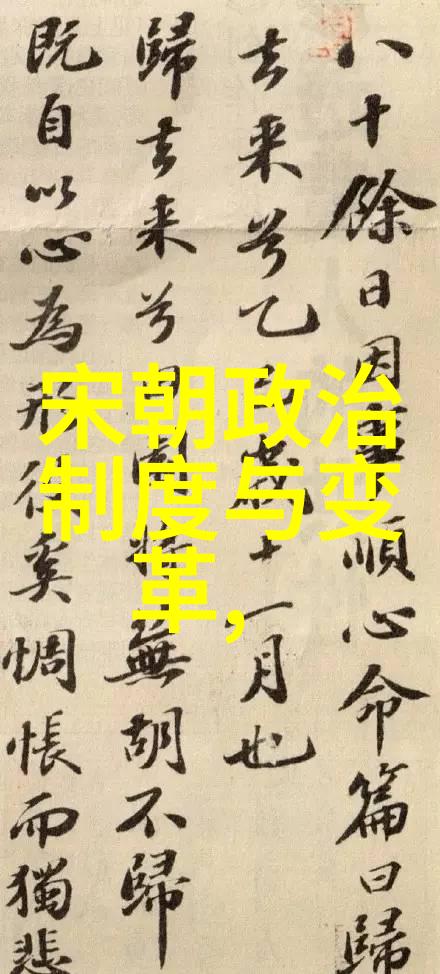 八十餘日因事順心命篇曰歸
去来兮乙巳歲十一月也
歸去来兮田園將蕪胡不歸
既自以心為形役奚惆悵而獨悲
宋朝政治
制度与变
革,